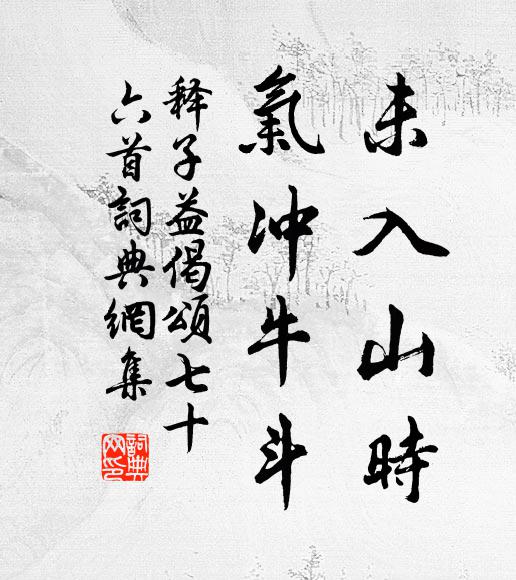 未入山時
氣冲牛斗
释子益偈頌七十
六首詞典網集
詞典
网印